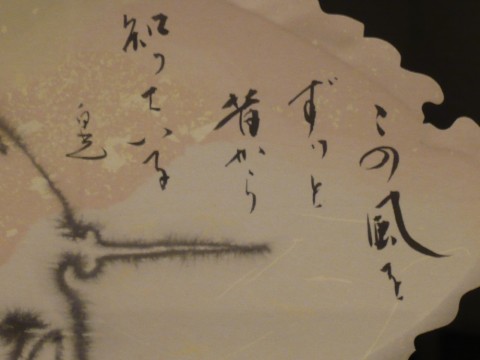 この風を
ずっと
昔から
知っている